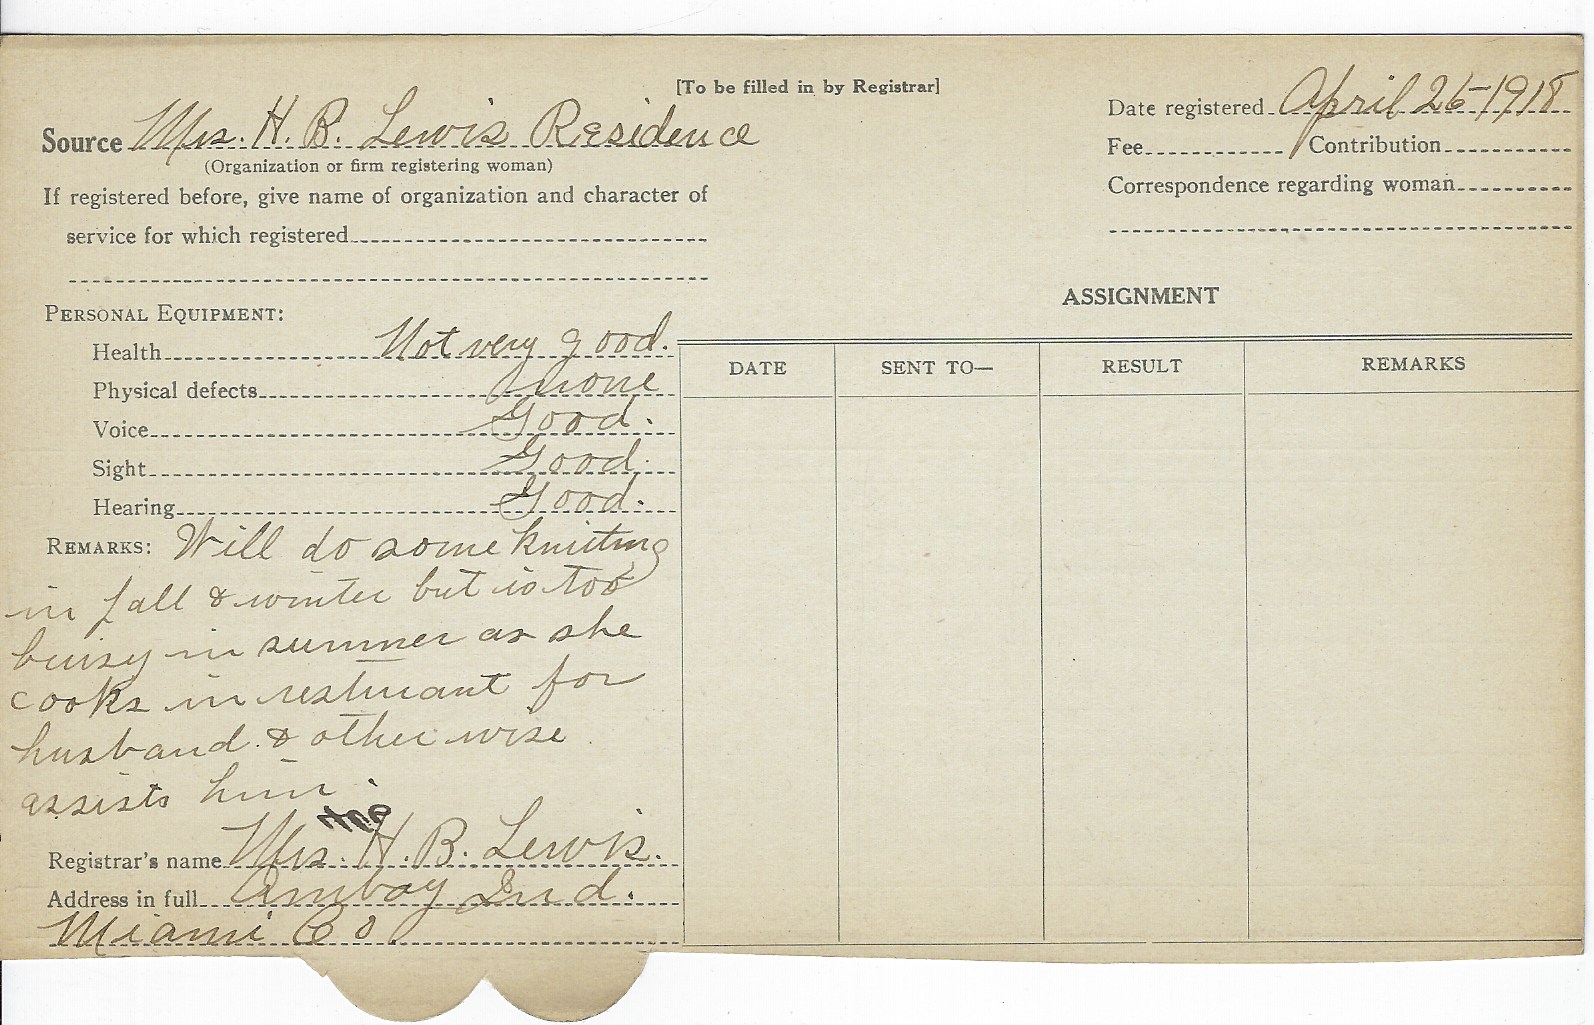 [To be filled in by Registrar]
Source Mrs. H. B. Lewis Residence
(Organization or firm registering woman)
If registered before, give name of organization and character of
service for which registered
Date registered April 26-1918
Fee Contribution
Correspondence regarding woman
PERSONAL EQUIPMENT:
Health Not very good.
Physical defects none
Voice Good.
Sight Good.
Hearing Good.
REMARKS: Will do some knitting
in fall & winter but is too
buisy in summer as she
cooks in resturant for
husband & other wise
assists him.
Registrar's name Mrs. H. B. Lewis.
Address in full Amboy Ind.
Miami Co.
ASSIGNMENT
DATE SENT TO— RESULT REMARKS